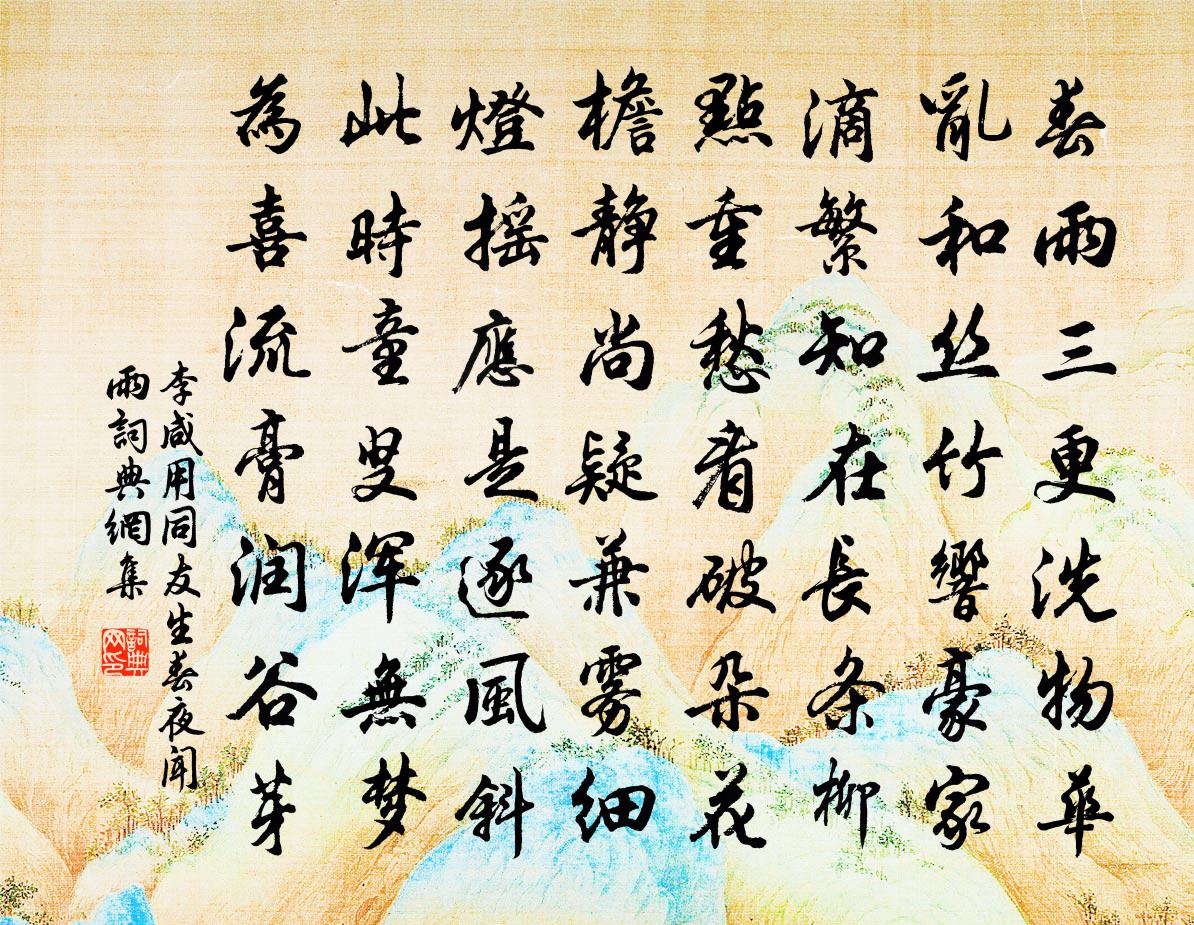 春雨三更洗物華
亂和丝竹響豪家
滴繁知在長条柳
點重愁看破朵花
檐静尚疑兼雾細
燈摇應是逐風斜
此時童叟浑無梦
為喜流膏润谷芽
李咸用同友生春夜聞
雨詞典網集
詞典
网印